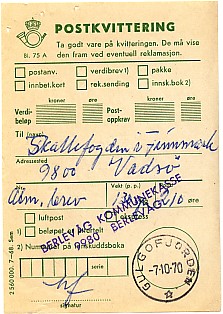 POSTKVITTERING
Ta godt vare på kvitteringen. De må vise
den fram ved eventuell reklamasjon.
Bl. 75 A
postanv. verdibrev 1) pakke
innbet.kort rek.sending innsk.bok 2)
kroner øre kroner øre
Verdi-
beløp Post-
oppkrav
Til (navn)
Skattefogden i Finnmark
Adressested
9800 Vadsö
Art Vekt (p.p.)
Alm. brev
luftpost
1) beløpet er opptelt
2) Nummer på innskuddsboka
serie
BERLEVÅG KOMMUNEKASSE
9980 BERLEVÅG
GULGOFJORDEN
-7-10-70
2 560 000. 7-68. Sem